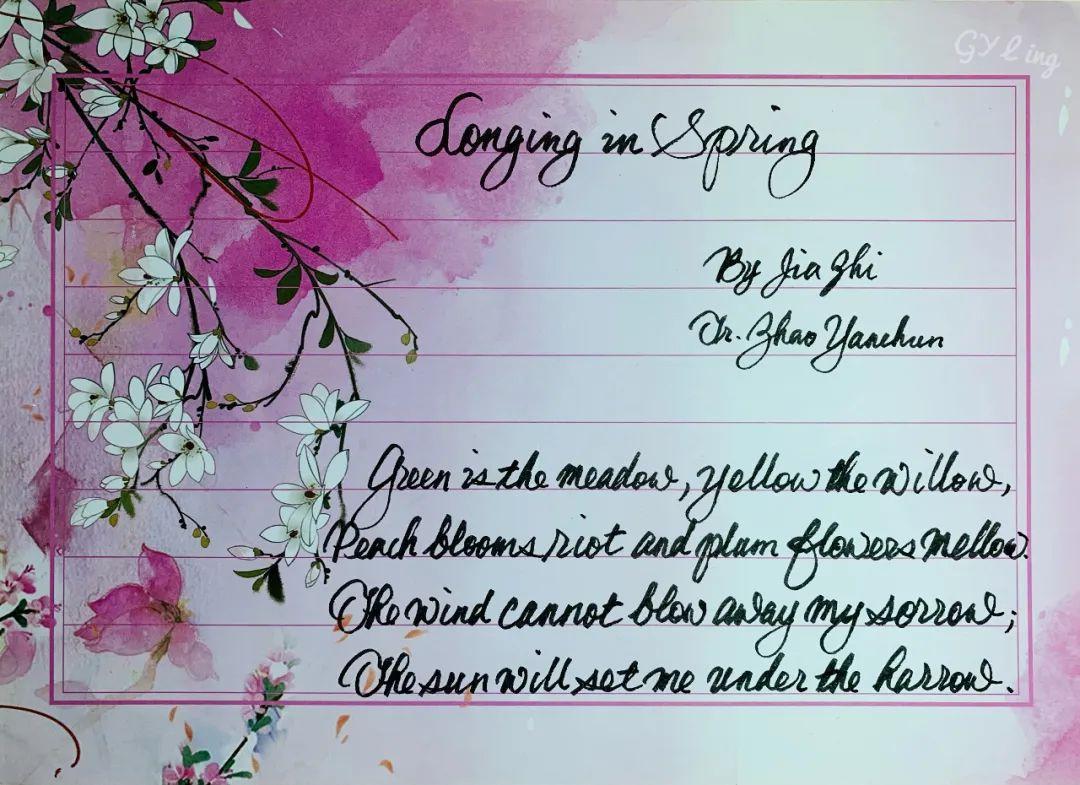 GYLing
Longing in Spring
By Jia Zhi
Tr. Zhao Yanchun
Green is the meadow, yellow the willow,
Peach blooms riot and plum flowers mellow.
The wind cannot blow away my sorrow;
The sun will set me under the harrow.